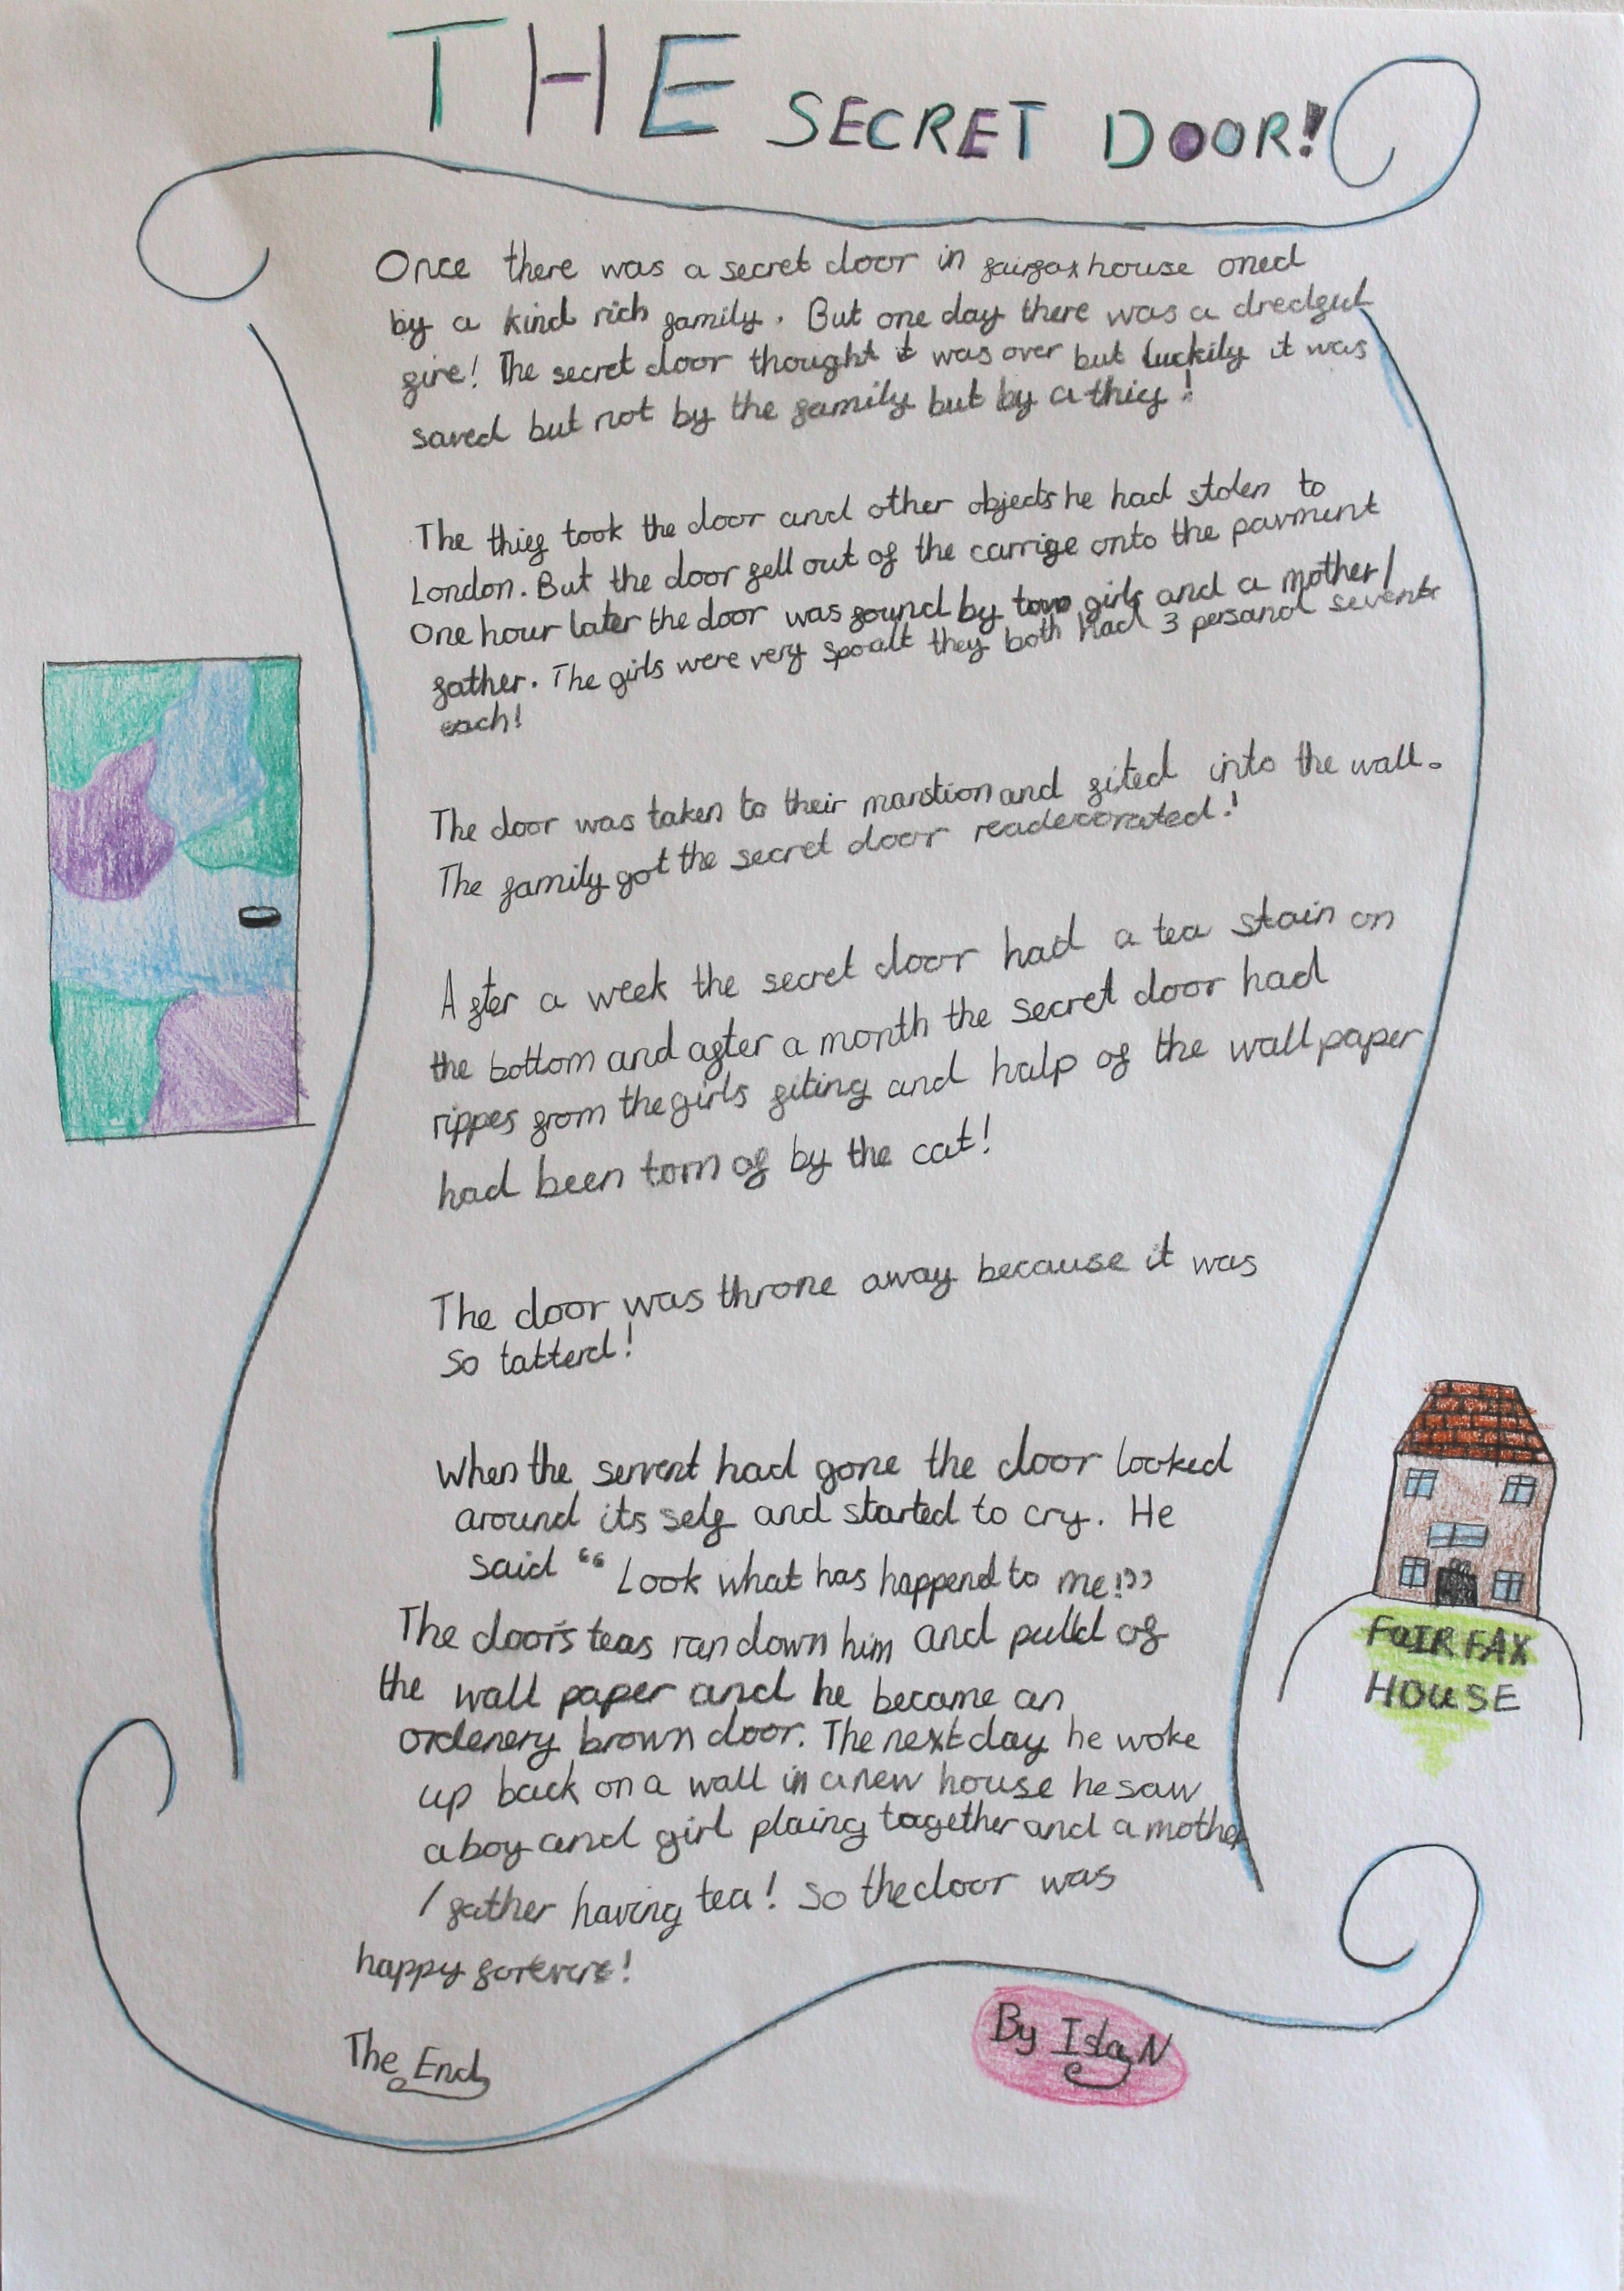 THE SECRET DOOR!
Once there was a secret door in fairfax house oned
by a kind rich family. But one day there was a dredful
fire! The secret door thought it was over but luckily it was
saved but not by the family but by a thief!
The thief took the door and other objects he had stolen to
London. But the door fell out of the carrige onto the pavment
One hour later the door was found by two girls and a mother/
father. The girls were very spoalt they both had 3 persanol sevents
each!
The door was taken to their manstion and fited into the wall.
The family got the secret door readecorated!
After a week the secret door had a tea stain on
the bottom and after a month the secret door had
rippes from the girls fiting and halp of the wall paper
had been torn of by the cat!
The door was throne away because it was
so tatterd!
When the servent had gone the door looked
around its self and started to cry. He
said “Look what has happend to me!”
The door's teas ran down him and pulld of
the wall paper and he became an
ordenery brown door. The next day he woke
up back on a wall in a new house he saw
a boy and girl plaing together and a mother
/ father having tea! So the door was
happy forever!
The End
By Isla N
FAIRFAX
HOUSE